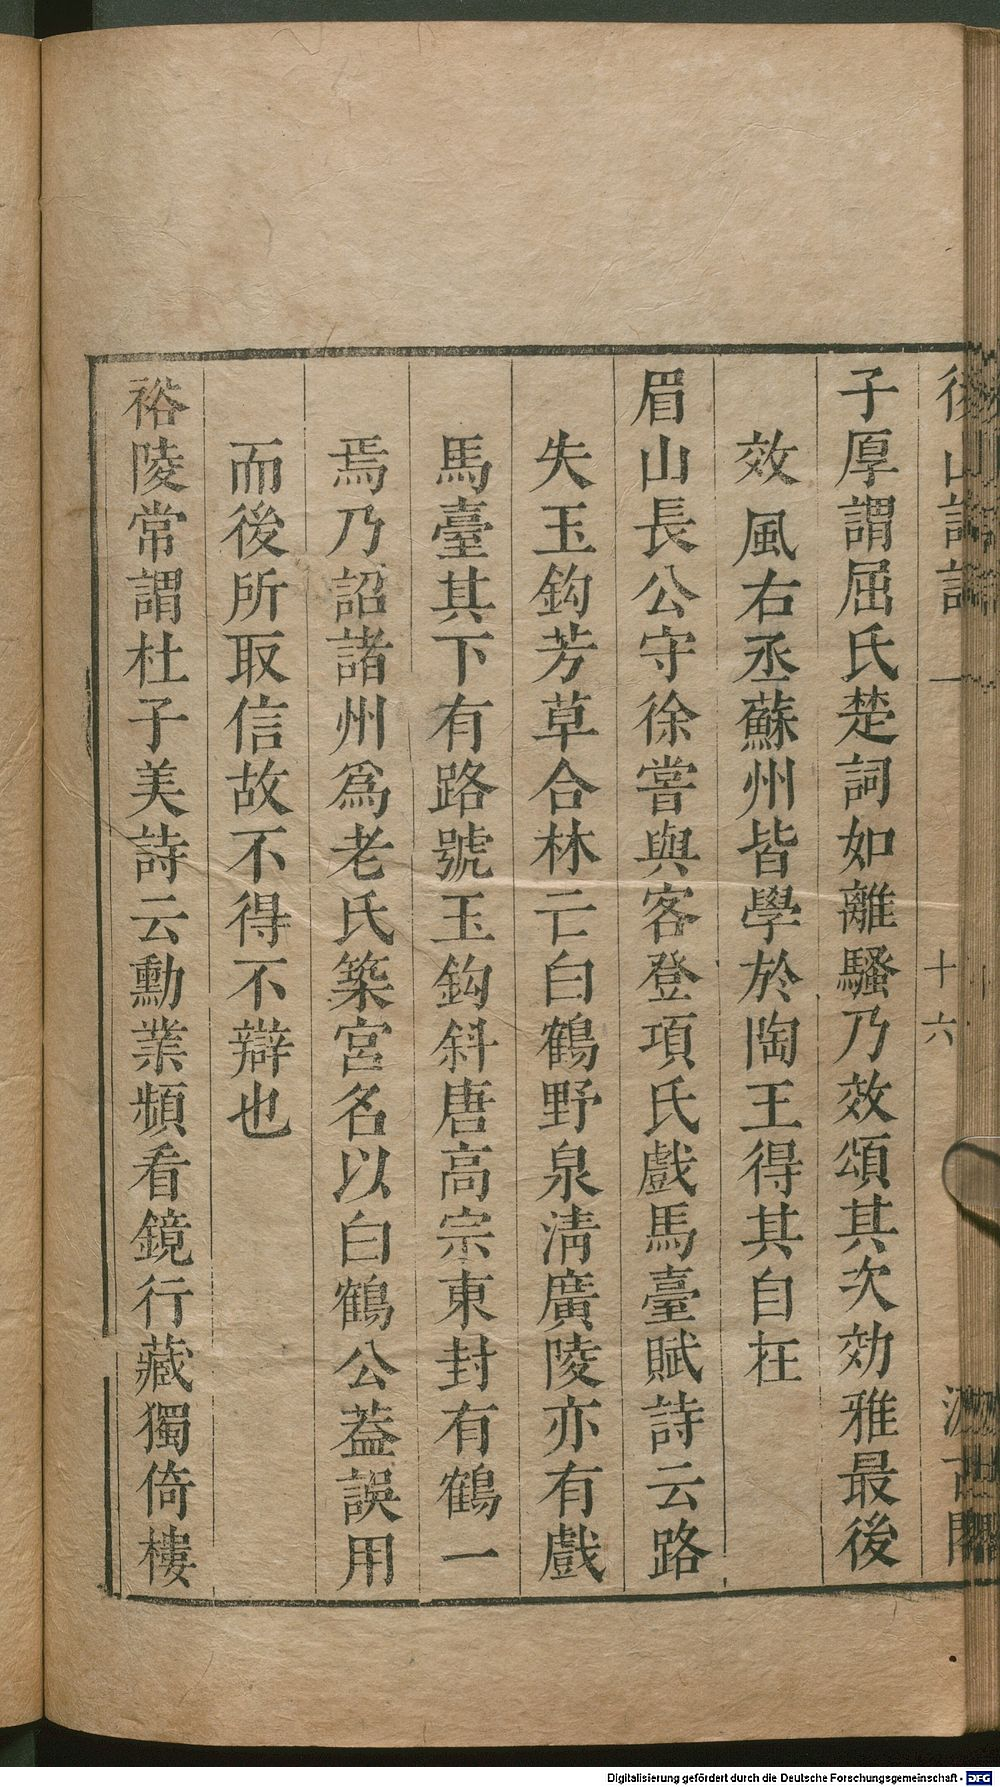 後山詩話 一 十六 汲古閣
子厚謂屈氏楚詞如離騷乃效頌其次効雅最後
效風右丞蘇州皆學於陶王得其自在
眉山長公守徐嘗與客登項氏戲馬臺賦詩云路
失玉鈎芳草合林亡白鶴野泉淸廣陵亦有戲
馬臺其下有路號玉鈎斜唐高宗東封有鶴一
焉乃詔諸州爲老氏築宮名以白鶴公葢誤用
而後所取信故不得不辯也
裕陵常謂杜子美詩云勳業頻看鏡行藏獨倚樓
Digitalisierung gefördert durch die Deutsche Forschungsgemeinschaft - DFG